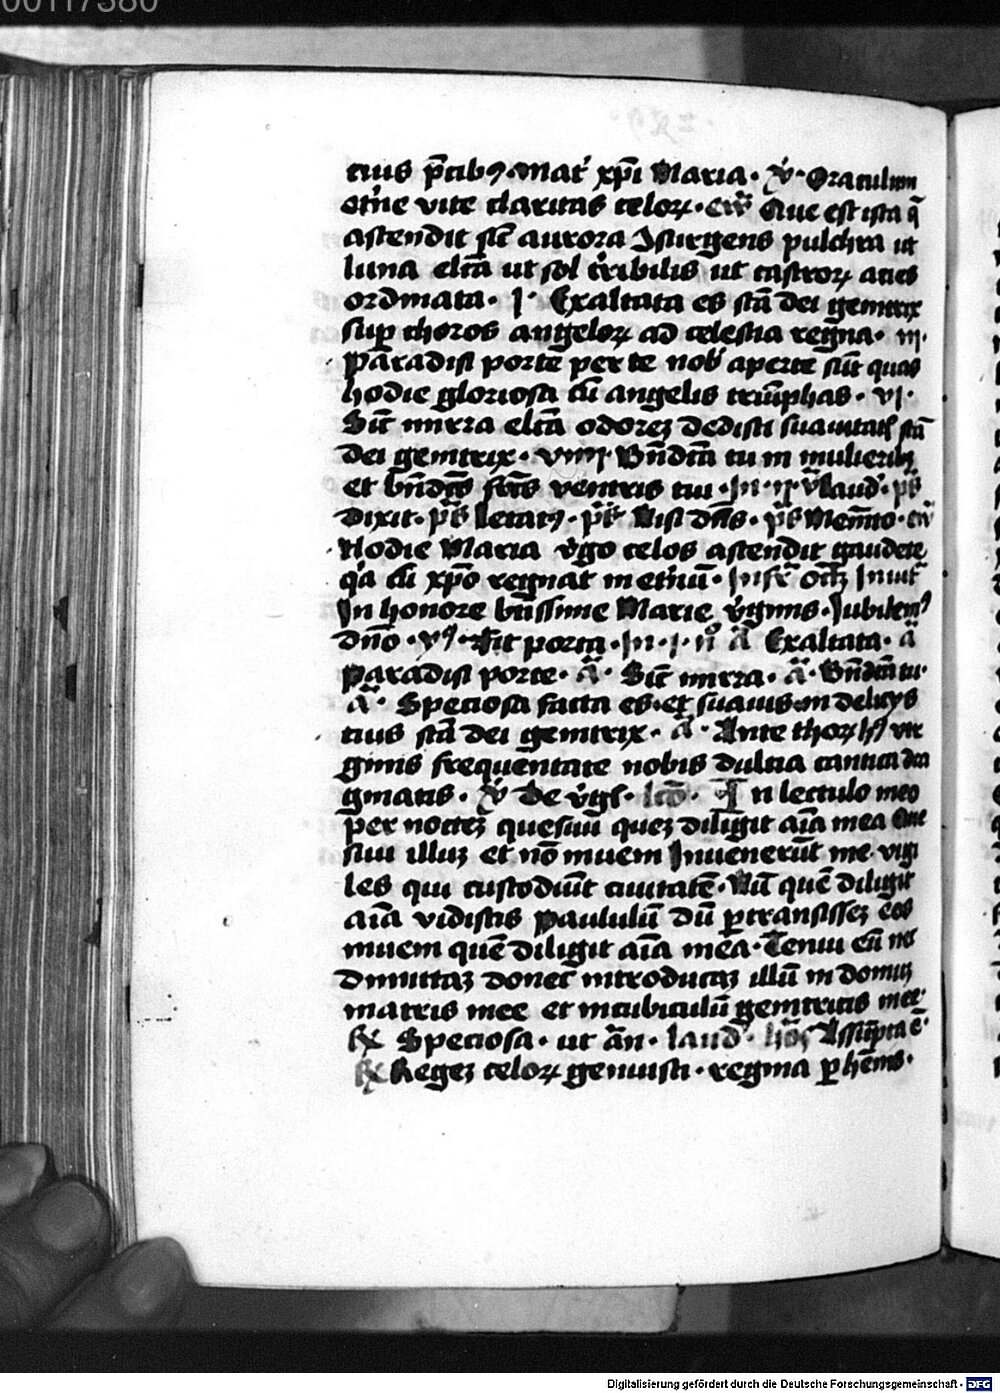 00117380
tuis p̄cibꝰ · mat᷑ xp̄i Maria · v᷑ · Oraculum
et᷑ne vite claritas celoꝝ · ew̄ Que est ista q̄
ascendit sic̄ aurora ꝯsurgens pulchra ut
luna elc̄a ut sol t᷑ribilis ut castroꝝ acies
ordinata · j · Exaltata es sc̄a dei genitrix
suꝑ choros angeloꝝ ad celestia regna · iij ·
Paradisi porte per te nob᷑ aperte sūt quas
hodie gloriosa cū angelis triūphas · vj ·
Sic̄ mirra elc̄a odoreꝫ dedisti suauitatꝭ sc̄a
dei genitrix · viiij · Bn̄dc̄a tu in mulieribꝫ
et bn̄dc̄s fc̄s ventris tui · In · ij · v᷑ laud᷑ · ps̄
dixit · ps̄ letatꝰ · ps̄ Nisi dn̄s · ps̄ Mem̄to · ew̄
Hodie Maria v᷑go celos ascendit gaudete
q᷑a cū xp̄o regnat in et᷑nū · Infr᷑ oc̄ꝫ Inuit᷑
In honore bt̄issime Marie v᷑ginis · Jubilemꝰ
dn̄o · vꝰ · Fit porta · In · j · n° ā Exaltata · ā
paradisi porte · ā · Sic̄ mirra · ā · Bn̄dc̄a tu ·
ā · Speciosa facta es · et suauis · in delicijs
tuis sc̄a dei genitrix · ā · Ante thoꝝ hꝰ vir
ginis frequentate nobis dulcia cantica dra
gmatis · v᷑ de v᷑gī · lc̄o · In lectulo meo
per nocteꝫ quesiui queꝫ diligit aīa mea Que
siui illuꝫ et nō inueni Inuenerūt me vigi
les qui custodiūt ciuitatē · Nū quē diligit
aīa vidistis Paululū dū ꝑtransisseꝫ eos
inueni quē diligit aīa mea · Tenui eū nec
dimittaꝫ donec introducaꝫ illū in domuꝫ
matris mee et incubiculū genitricis mee ·
R᷑ Speciosa · ut ān · laud᷑ · hꝰ Assūpta ē ·
R᷑ Regeꝫ celoꝝ genuisti · regina ꝑhēnis ·
Digitalisierung gefördert durch die Deutsche Forschungsgemeinschaft - DFG